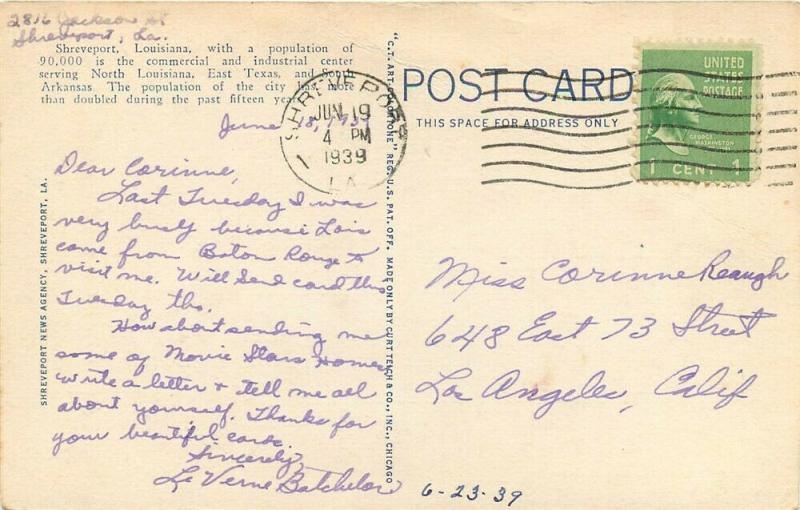 2816 Jackson St
Shreveport, La.
Shreveport, Louisiana, with a population of
90,000 is the commercial and industrial center
serving North Louisiana, East Texas, and South
Arkansas. The population of the city has more
than doubled during the past fifteen years.
June 18, 1939
Dear Corinne,
Last Tuesday I was
very busly because Lois
came from Baton Rouge to
visit me. Will send card this
Tuesday tho.
How about sending me
some of Movie Stars Homes
write a letter + tell me all
about yourself. Thanks for
your beautiful cards.
Sincerely,
Le Verne Batchelor
SHREVEPORT NEWS AGENCY, SHREVEPORT, LA.
"C.T. ART-COLORTONE" REG. U.S. PAT. OFF. MADE ONLY BY CURT TEICH & CO., INC., CHICAGO
SHREVEPORT
JUN 19
4 PM
1939
LA
1
POST CARD
THIS SPACE FOR ADDRESS ONLY
UNITED
STATES
POSTAGE
GEORGE
WASHINGTON
1 CENT 1
Miss Corinne Reaugh
648 East 73 Street
Los Angeles, Calif
6-23-39